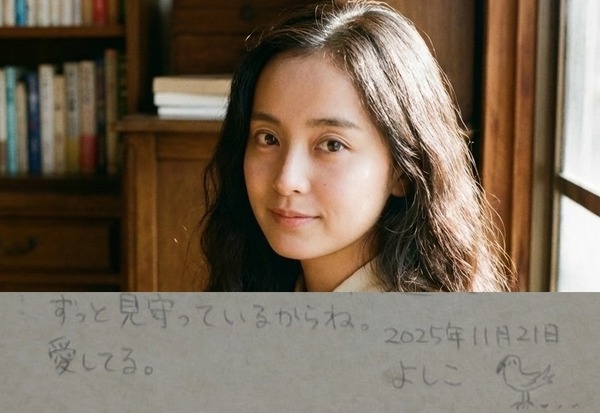 ずっと見守っているからね。
愛してる。
2025年11月21日
よしこ